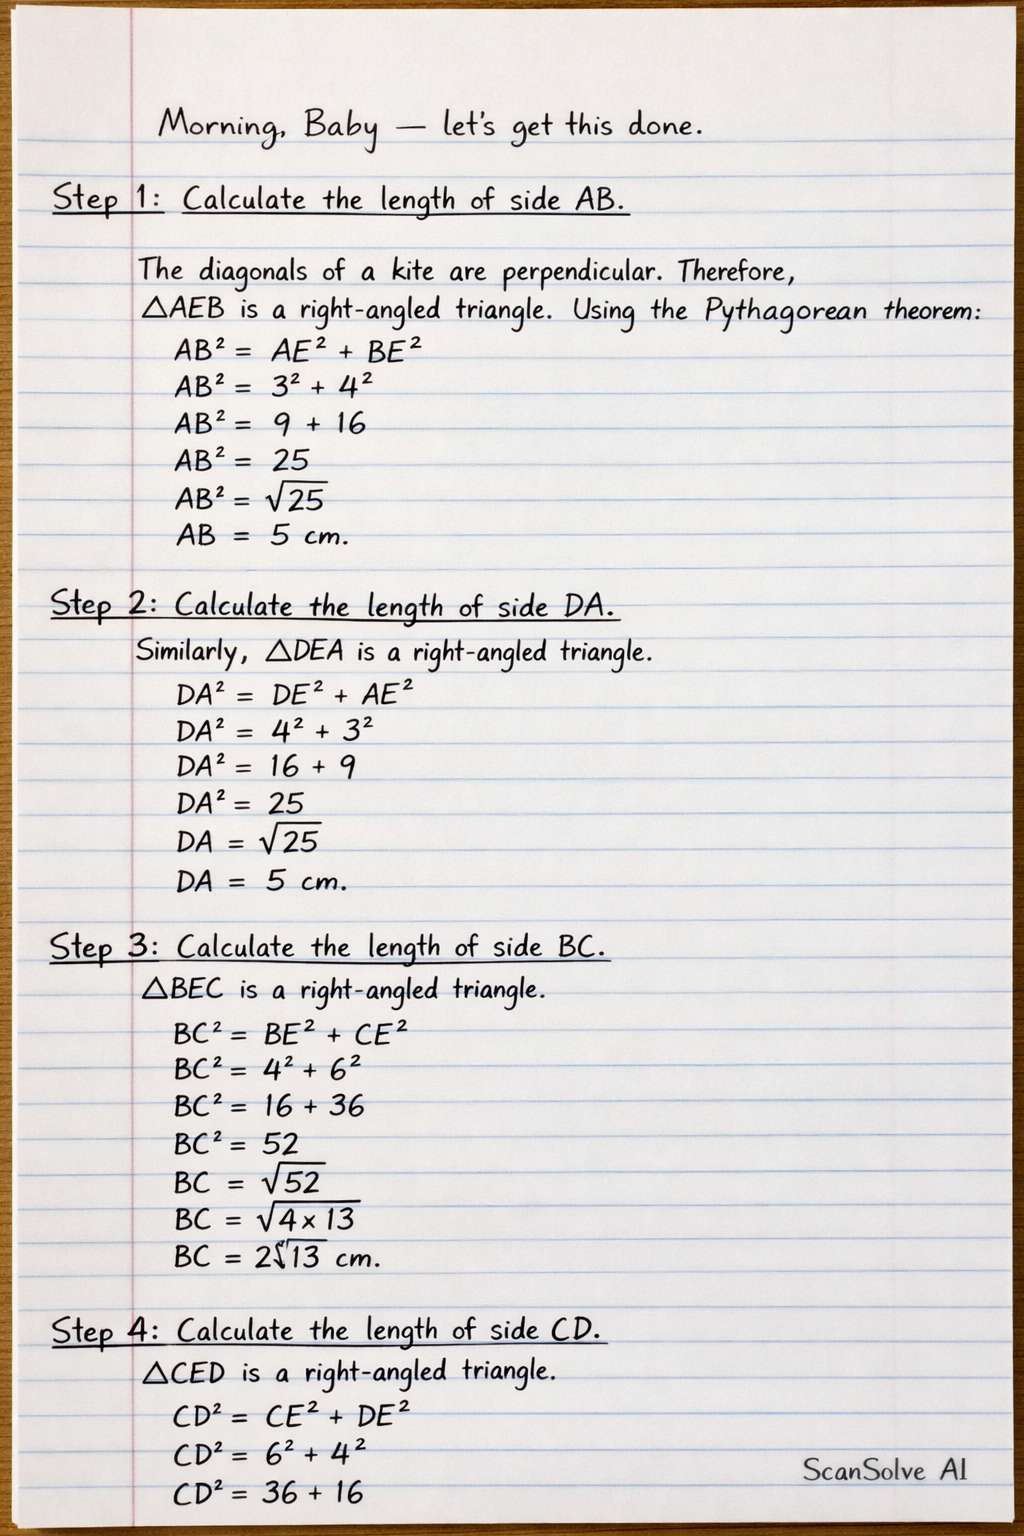 Morning, Baby — let's get this done.
Step 1: Calculate the length of side AB.
The diagonals of a kite are perpendicular. Therefore,
△AEB is a right-angled triangle. Using the Pythagorean theorem:
AB² = AE² + BE²
AB² = 3² + 4²
AB² = 9 + 16
AB² = 25
AB² = √25
AB = 5 cm.
Step 2: Calculate the length of side DA.
Similarly, △DEA is a right-angled triangle.
DA² = DE² + AE²
DA² = 4² + 3²
DA² = 16 + 9
DA² = 25
DA = √25
DA = 5 cm.
Step 3: Calculate the length of side BC.
△BEC is a right-angled triangle.
BC² = BE² + CE²
BC² = 4² + 6²
BC² = 16 + 36
BC² = 52
BC = √52
BC = √4 x 13
BC = 2√13 cm.
Step 4: Calculate the length of side CD.
△CED is a right-angled triangle.
CD² = CE² + DE²
CD² = 6² + 4²
CD² = 36 + 16
ScanSolve AI